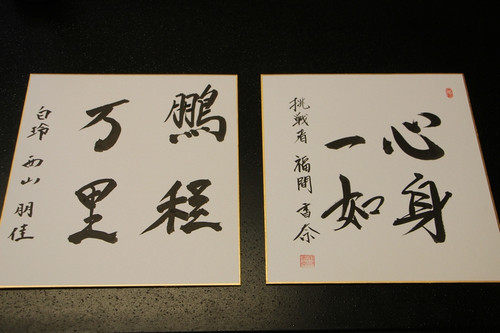 心身
一如
挑戦者 福間 香奈
鵬程
万里
白玲 西山 朋佳